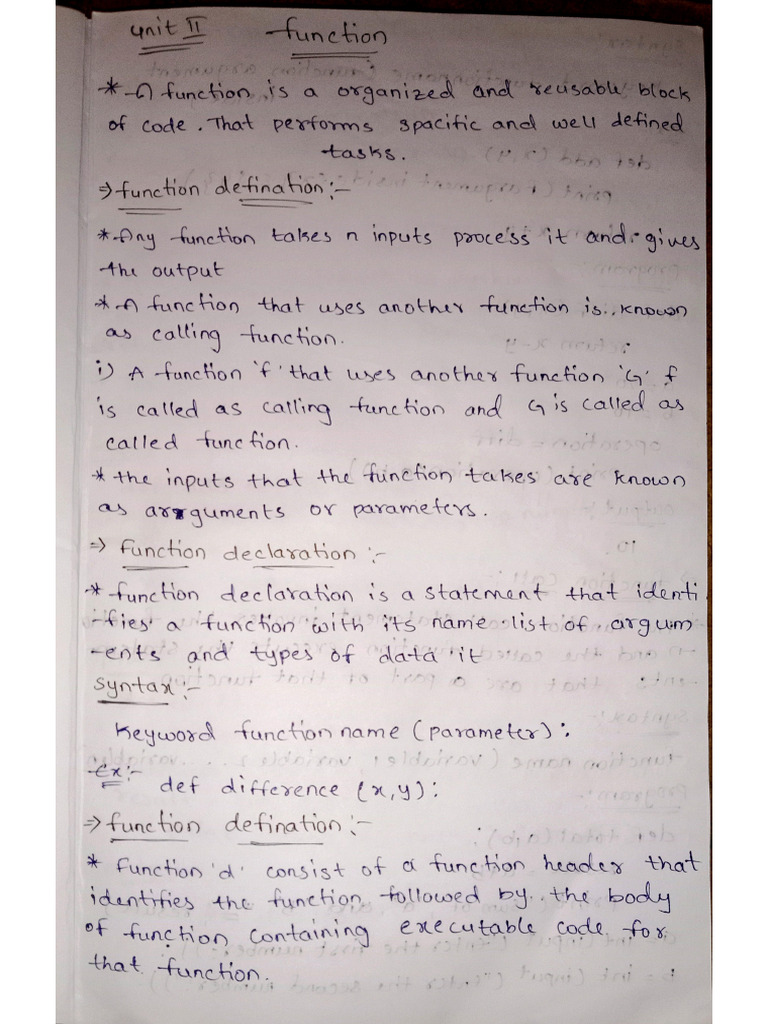 unit II function
* A function is a organized and reusable block
of code. That performs spacific and well defined
tasks.
⇒ function defination:-
* Any function takes n inputs process it and gives
the output
* A function that uses another function is known
as calling function.
i) A function 'f' that uses another function 'G' f
is called as calling function and G is called as
called function.
* the inputs that the function takes are known
as arguments or parameters.
⇒ function declaration:-
* function declaration is a statement that identi
-fies a function with its name list of argum
-ents and types of data it
syntax:-
Keyword function name (parameter):
Ex:- def difference (x,y):
⇒ function defination:-
* function 'd' consist of a function header that
identifies the function followed by the body
of function containing executable code for
that function.